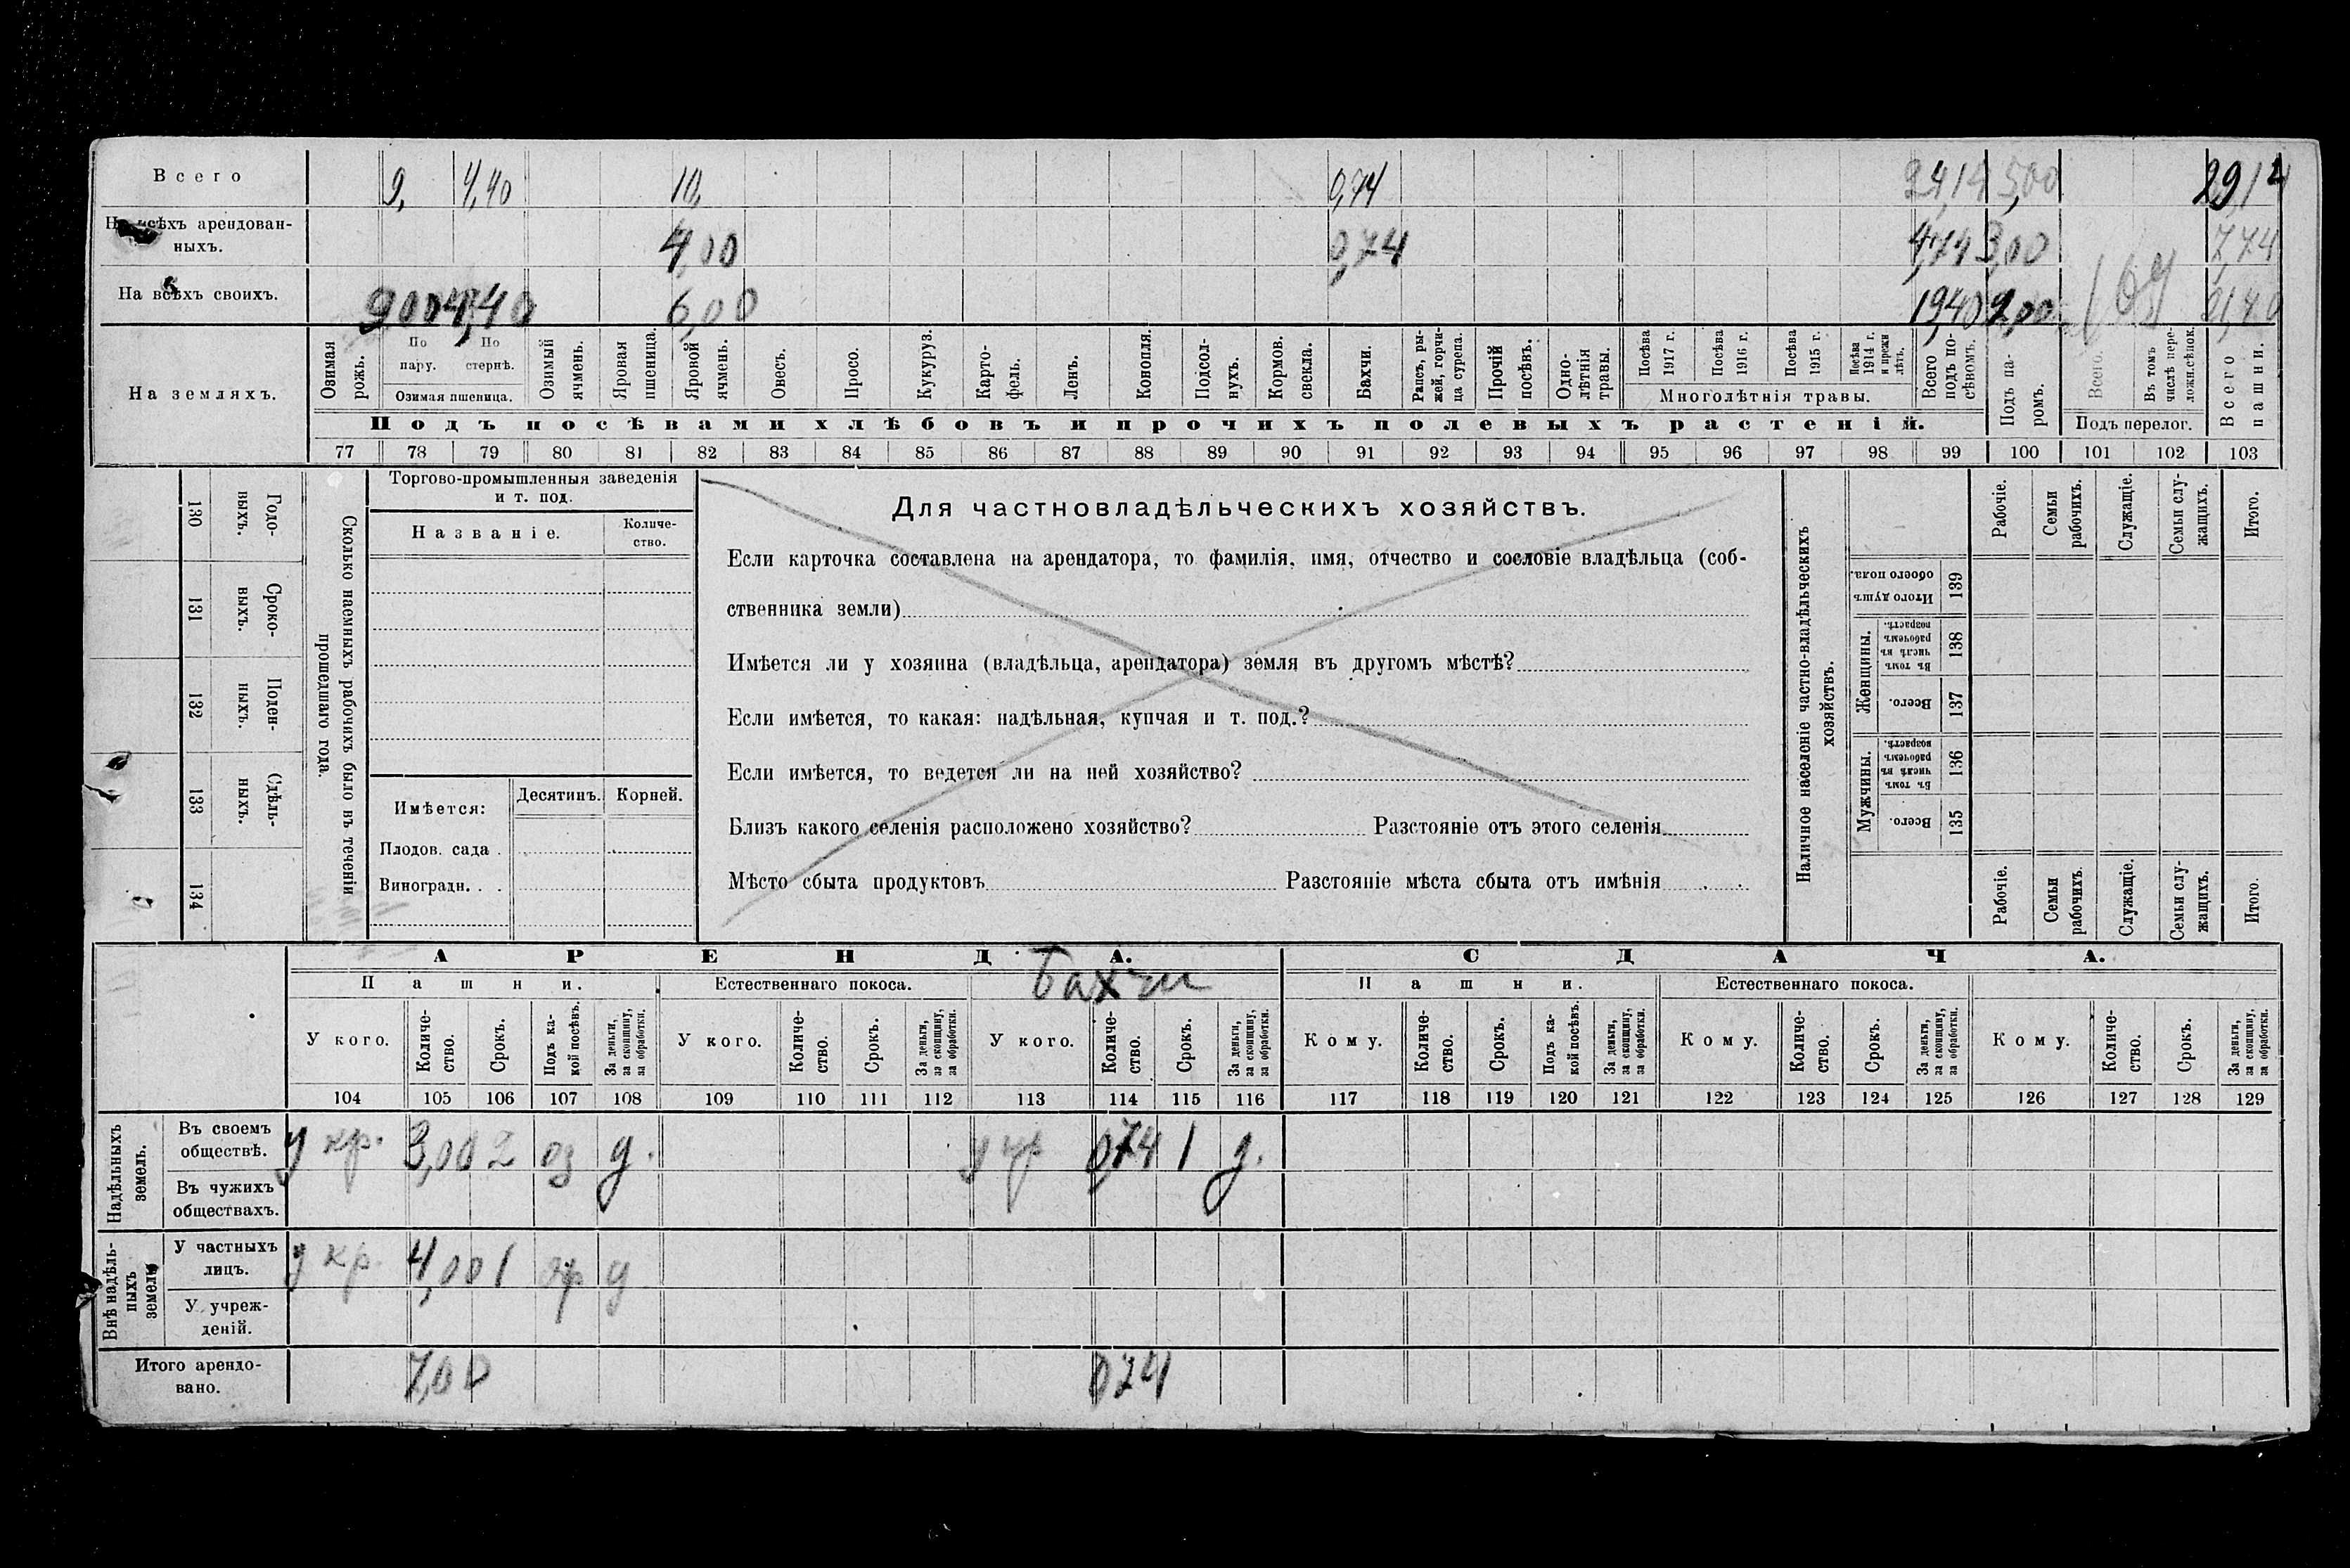 Всего 9, 4,40 10, 0,74 24,14 5,00 29,14
На всѣхъ арендован-
ныхъ. 4,00 0,74 4,74 3,00 7,74
На всѣхъ своихъ. 9 00 4,40 6,00 19,40 2,00 21,40
На земляхъ.
Озимая рожь.
По пару.
По стернѣ.
Озимая пшеница.
Озимый ячмень.
Яровая пшеница.
Яровой ячмень.
Овесъ.
Просо.
Кукуруз.
Карто-
фель.
Ленъ.
Конопля.
Подсол-
нухъ.
Кормов.
свекла.
Бахчи.
Рапсъ, ры-
жей, горчи-
ца сурепа.
Прочій
посѣвъ.
Одно-
лѣтнія
травы.
Посѣва
1917 г.
Посѣва
1916 г.
Посѣва
1915 г.
Посѣва
1914 г.
и прежн
лѣтъ.
Многолѣтнія травы.
Всего
подъ по-
сѣвомъ.
Подъ па-
ромъ.
Всего.
Въ томъ
числѣ пере-
ложн.сѣнок.
Подъ перелог.
Всего
пашни.
Подъ посѣвами хлѣбовъ и прочихъ полевыхъ растеній.
77 78 79 80 81 82 83 84 85 86 87 88 89 90 91 92 93 94 95 96 97 98 99 100 101 102 103
130 Годо-
выхъ.
131 Сроко-
выхъ.
132 Поден-
ныхъ.
133 Сдѣль-
ныхъ.
134
Сколько наемныхъ рабочихъ было въ теченіи
прошедшаго года.
Торгово-промышленныя заведенія
и т. под.
Названіе.
Количе-
ство.
Имѣется: Десятинъ. Корней.
Плодов. сада .
Виноградн. . .
Для частновладѣльческихъ хозяйствъ.
Если карточка составлена на арендатора, то фамилія, имя, отчество и сословіе владѣльца (соб-
ственника земли)
Имѣется ли у хозяина (владѣльца, арендатора) земля въ другомъ мѣстѣ?
Если имѣется, то какая: надѣльная, купчая и т. под.?
Если имѣется, то ведется ли на ней хозяйство?
Близъ какого селенія расположено хозяйство? Разстояніе отъ этого селенія
Мѣсто сбыта продуктовъ Разстояніе мѣста сбыта отъ имѣнія
Наличное населеніе частно-владѣльческихъ
хозяйствъ.
Рабочіе.
Семьи
рабочихъ.
Служащіе.
Семьи слу-
жащихъ.
Итого.
Итого душъ
обоего пола.
139
Женщины.
Въ томъ
числѣ въ
рабочемъ
возрастѣ.
138
Всего.
137
Мужчины.
Въ томъ
числѣ въ
рабочемъ
возрастѣ.
136
Всего.
135
Рабочіе.
Семьи
рабочихъ.
Служащіе.
Семьи слу-
жащихъ.
Итого.
АРЕНДА. СДАЧА.
Пашни. Естественнаго покоса. Бахчи Пашни. Естественнаго покоса.
У кого.
Количе-
ство.
Срокъ.
Подъ ка-
кой посѣвъ.
За деньги,
за скопщину,
за обработки.
У кого.
Количе-
ство.
Срокъ.
За деньги,
за скопщину,
за обработки.
У кого.
Количе-
ство.
Срокъ.
За деньги,
за скопщину,
за обработки.
Кому.
Количе-
ство.
Срокъ.
Подъ ка-
кой посѣвъ.
За деньги,
за скопщину,
за обработки.
Кому.
Количе-
ство.
Срокъ.
За деньги,
за скопщину,
за обработки.
Кому.
Количе-
ство.
Срокъ.
За деньги,
за скопщину,
за обработки.
104 105 106 107 108 109 110 111 112 113 114 115 116 117 118 119 120 121 122 123 124 125 126 127 128 129
Надѣльныхъ
земель.
Въ своемъ
обществѣ. у кр. 3,00 2 оз д. у кр 0,74 1 д.
Въ чужихъ
обществахъ.
Внѣ надѣль-
ныхъ
земель
У частныхъ
лицъ. у кр. 4,00 1 яр д
У учреж-
деній.
Итого арендо-
вано. 7,00 074